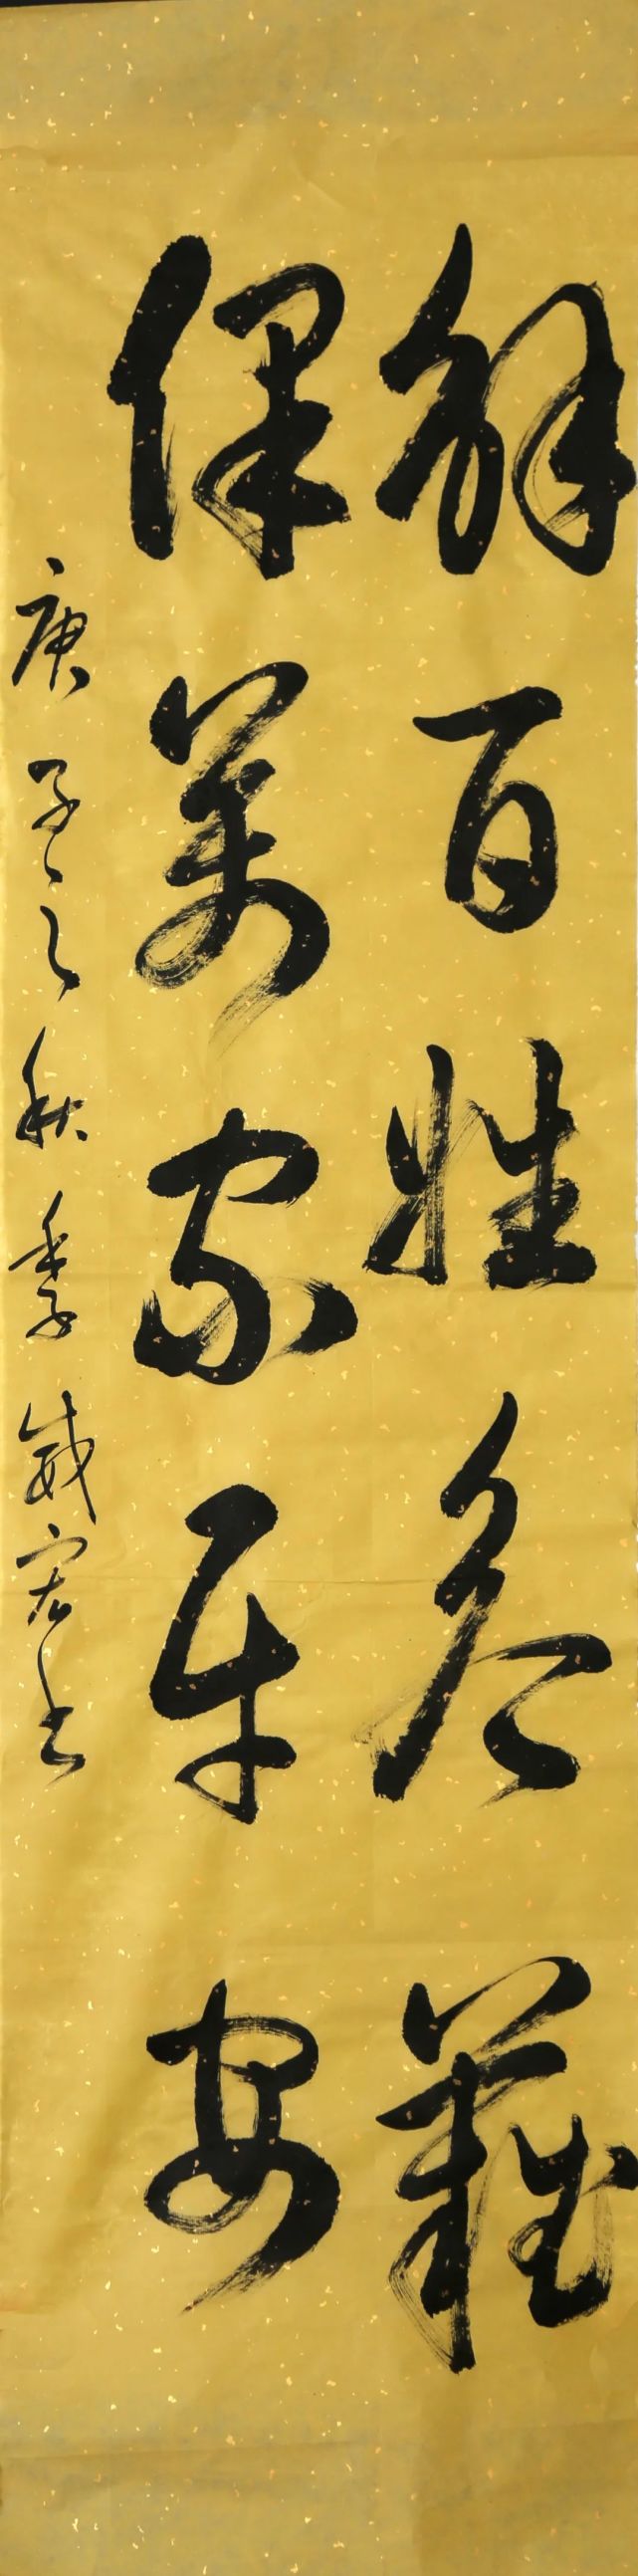 解百姓急難
保萬家平安
庚子之秋季威宏书